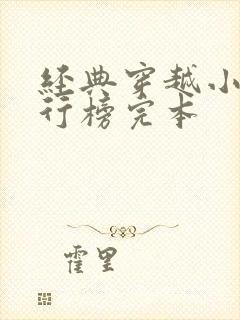 经典穿越小
行榜完本
霍里